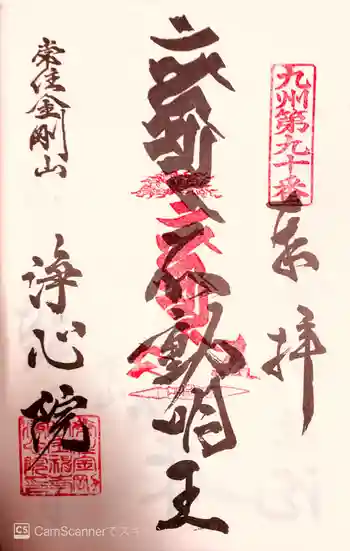 九州第九十番
奉拝
不動明王
常住金剛山
浄心院
CamScannerでスキ